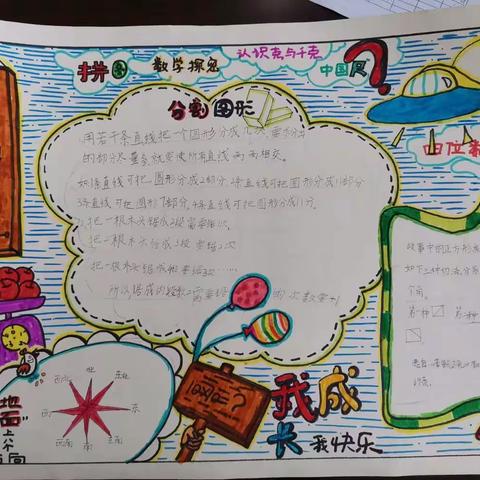 拼图
数学探总
认识克与千克
中国风
?
分割图形
用若干条直线把一个图形分成几块,要分
的部分尽量多就要使所有直线两两相交。
如1条直线可把圆形分成2部分,2条直线可把圆形分成4部分
3条直线可把圆形7部分,4条直线可把圆形分成11分。
把一根木头锯成2段需要锯1次
把一根木头分成3段要锯2次
把一根木头锯成4段要锯3次……
所以锯成的段数=需要锯的次数+1
四位
故事中的正方形
如下三种切法,分
个角。
第一种
第
北
东北
东
东南
南
西南
西
西北
地面
上
?
我成长
我快乐